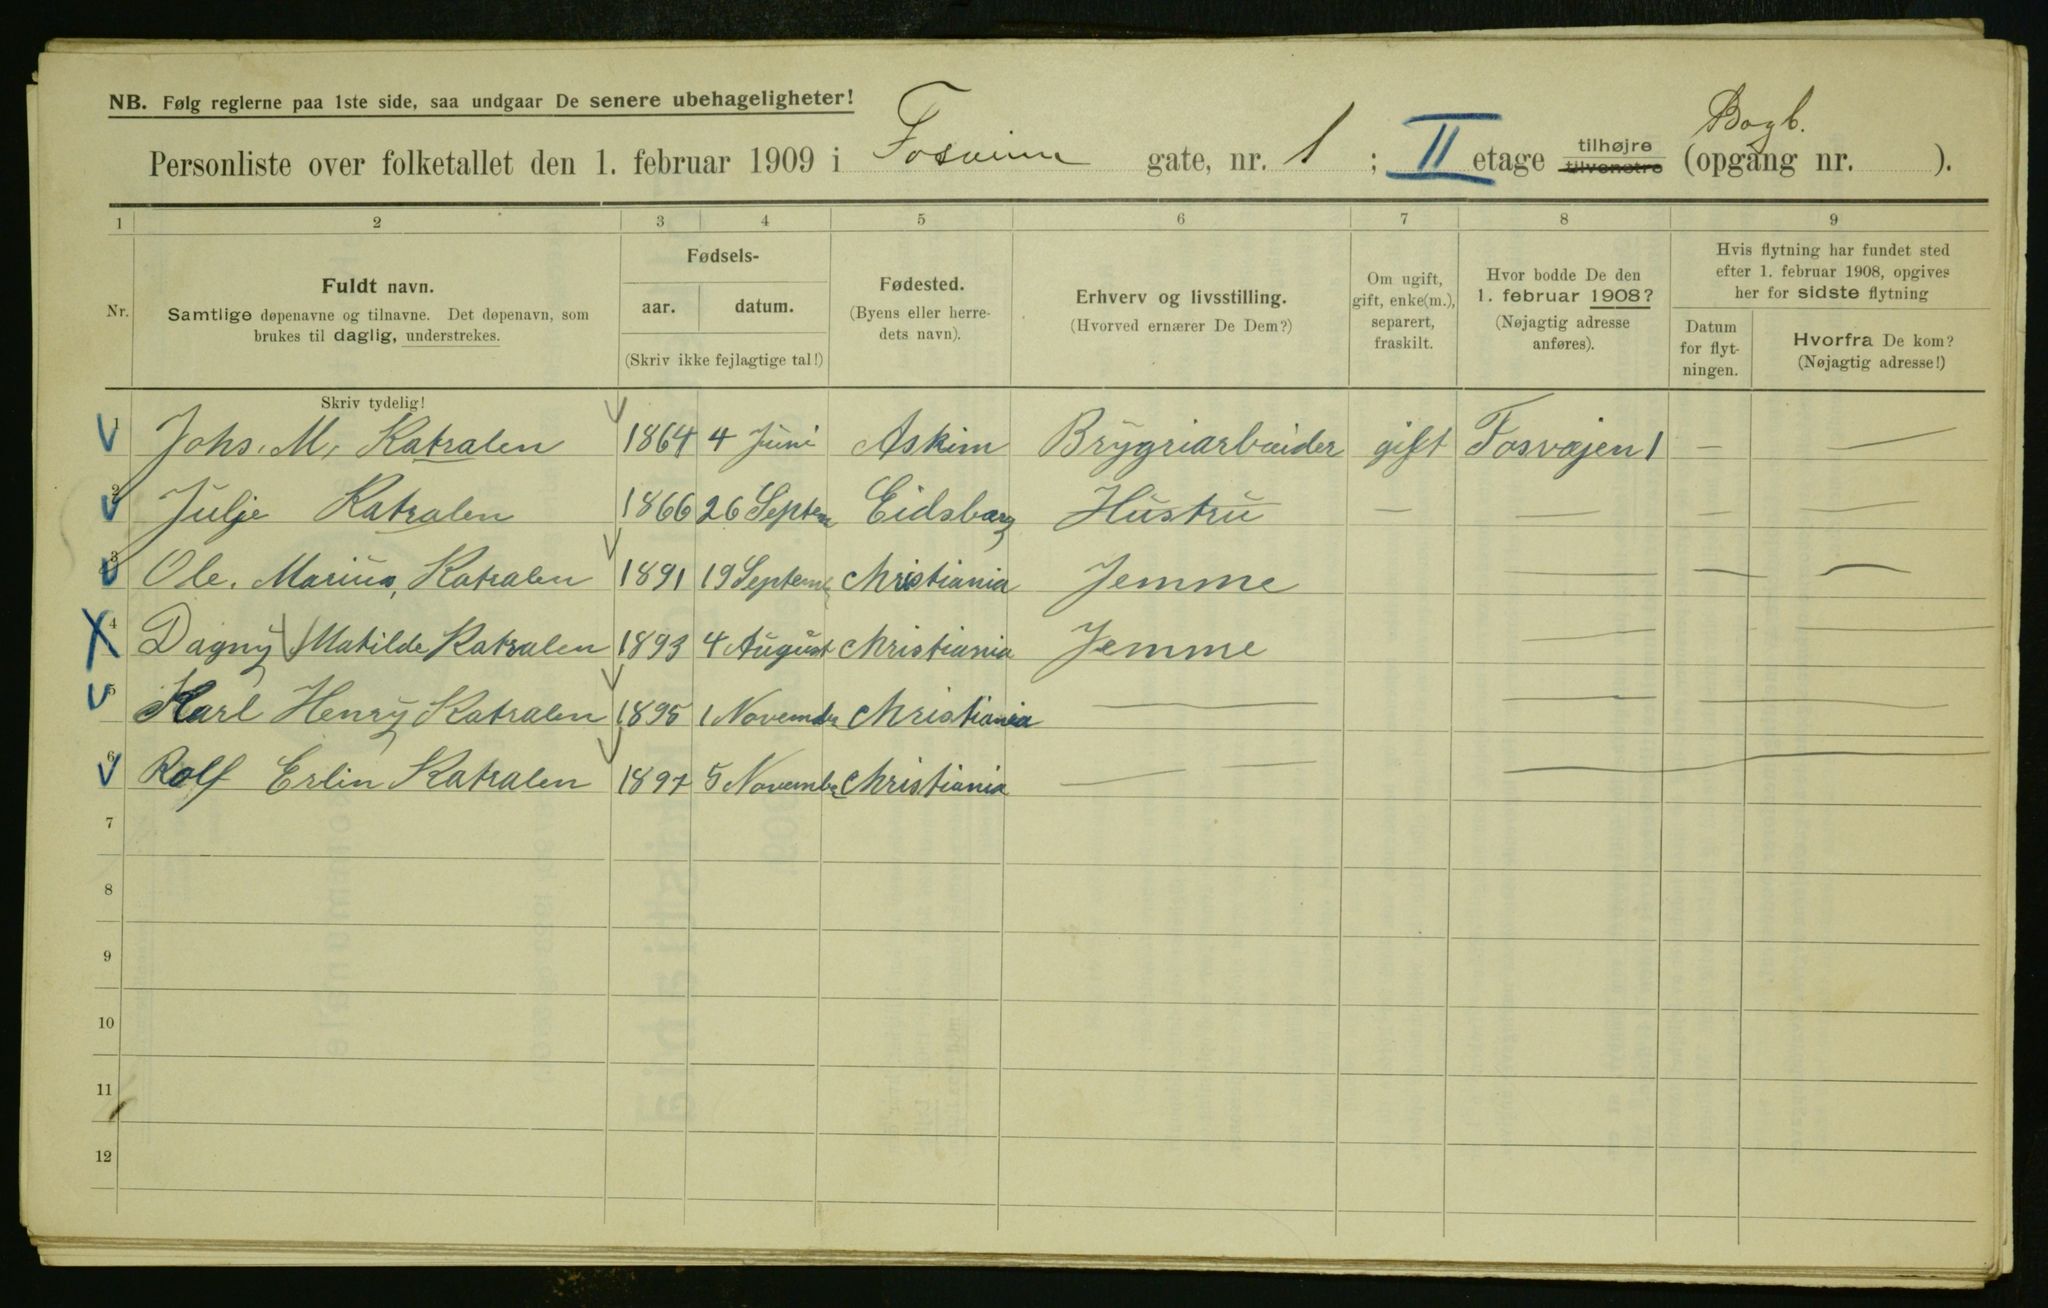 NB. Følg reglerne paa 1ste side, saa undgaar De senere ubehageligheter!
Bagb.
Personliste over folketallet den 1. februar 1909 i Fosveien gate, nr. 1 ; II etage tilhøjre tilvenstre (opgang nr. ).
1 2 3 4 5 6 7 8 9
Nr.
Fuldt navn.
Samtlige døpenavne og tilnavne. Det døpenavn, som
brukes til daglig, understrekes.
Fødsels-
aar. datum.
(Skriv ikke fejlagtige tal!)
Fødested.
(Byens eller herre-
dets navn).
Erhverv og livsstilling.
(Hvorved ernærer De Dem?)
Om ugift,
gift, enke(m.),
separert,
fraskilt.
Hvor bodde De den
1. februar 1908?
(Nøjagtig adresse
anføres).
Hvis flytning har fundet sted
efter 1. februar 1908, opgives
her for sidste flytning
Datum
for flyt-
ningen.
Hvorfra De kom?
(Nøjagtig adresse!)
Skriv tydelig!
1 Johs. M. Katralen 1864 4 Juni Askim Brygriarbeider gift Fosvejen 1 — —
2 Julje Katralen 1866 26 Septem Eidsbarg Hustru — — — —
3 Ole. Marius, Katralen 1891 19 Septemb Christiania Jemme — — —
4 Dagny Matilde Katralen 1893 4 August Christiania Jemme — —
5 Karl Henry Katralen 1895 1 November Christiania — — —
6 Rolf Erlin Katralen 1897 5 November Christiania — — —
7
8
9
10
11
12